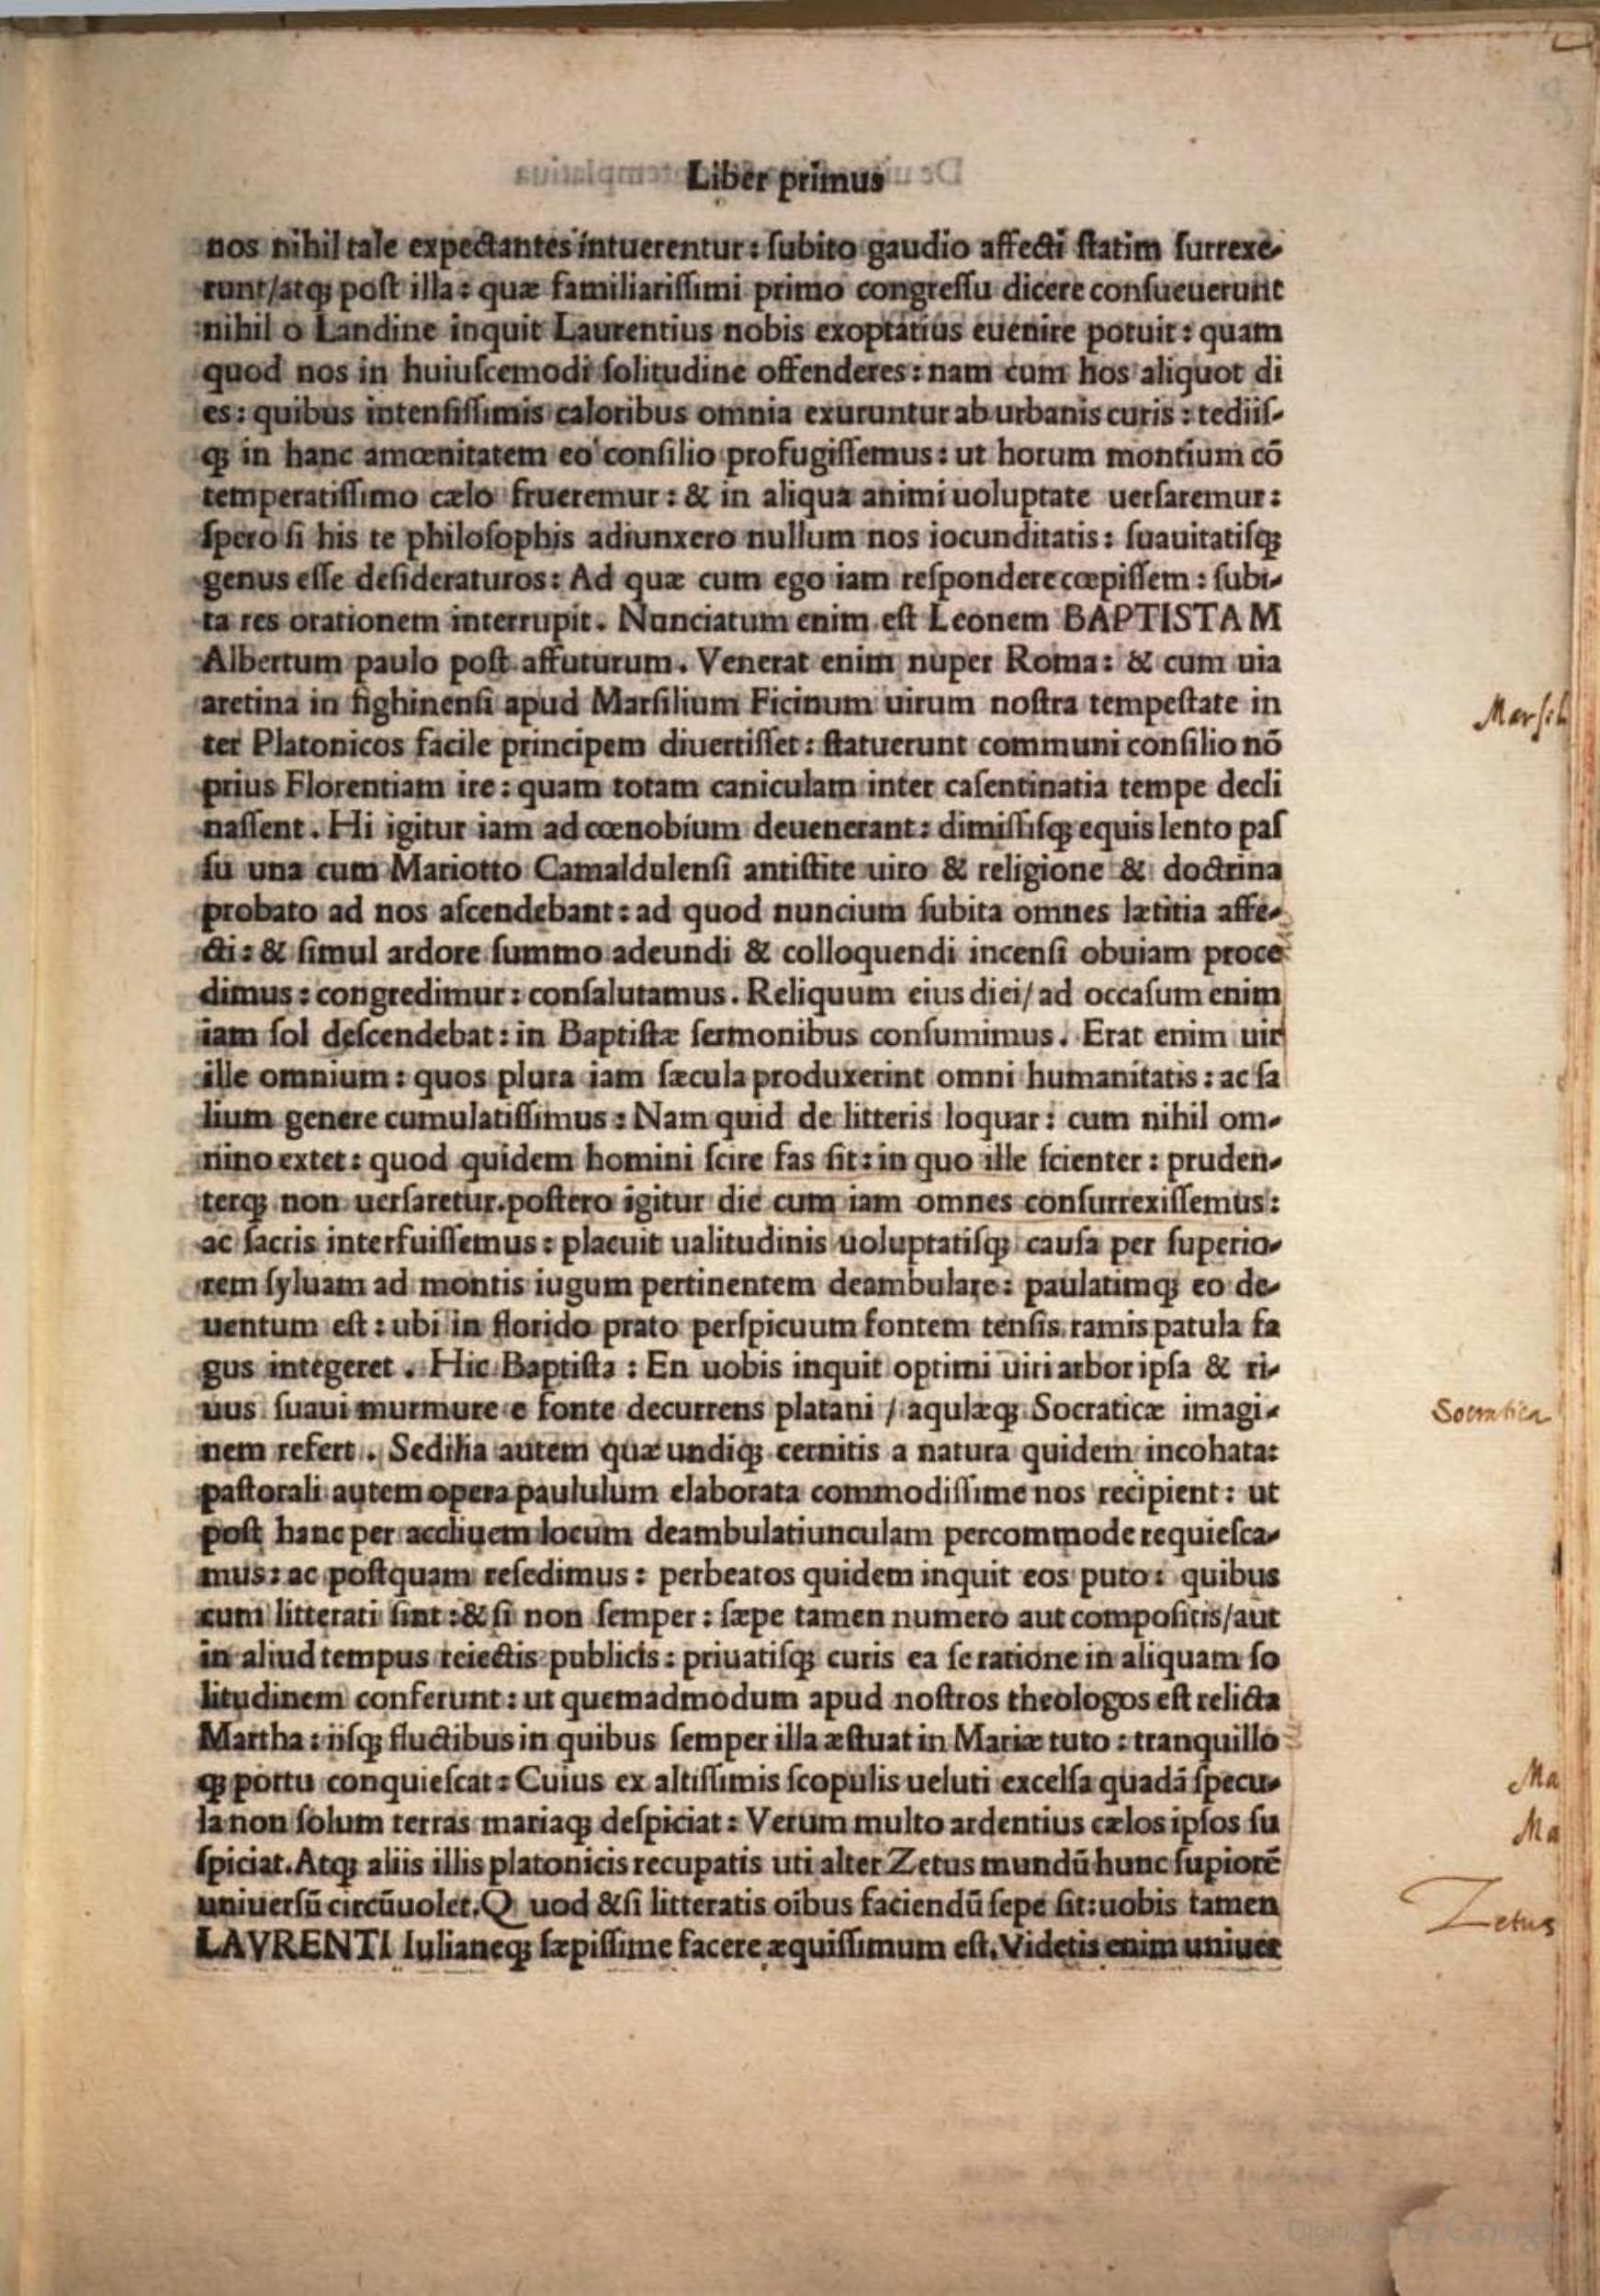 Liber primus
nos nihil tale expectantes intuerentur: ſubito gaudio affecti ſtatim ſurrexe-
runt/atqꝫ poſt illa: quæ familiariſſimi primo congreſſu dicere conſueuerunt
nihil o Landine inquit Laurentius nobis exoptatius euenire potuit: quam
quod nos in huiuſcemodi ſolitudine offenderes: nam cum hos aliquot di
es: quibus intenſiſſimis caloribus omnia exuruntur ab urbanis curis: tediiſ-
qꝫ in hanc amœnitatem eo conſilio profugiſſemus: ut horum montium cō
temperatiſſimo cælo frueremur: & in aliqua animi uoluptate uerſaremur:
ſpero ſi his te philoſophis adiunxero nullum nos iocunditatis: ſuauitatiſqꝫ
genus eſſe deſideraturos: Ad quæ cum ego iam reſpondere cœpiſſem: ſubi-
ta res orationem interrupit. Nunciatum enim eſt Leonem BAPTISTAM
Albertum paulo poſt affuturum. Venerat enim nuper Roma: & cum uia
aretina in fighinenſi apud Marſilium Ficinum uirum noſtra tempeſtate in
ter Platonicos facile principem diuertiſſet: ſtatuerunt communi conſilio nō
prius Florentiam ire: quam totam caniculam inter caſentinatia tempe decli
naſſent. Hi igitur iam ad cœnobium deuenerant: dimiſſiſqꝫ equis lento paſ
ſu una cum Mariotto Camaldulenſi antiſtite uiro & religione & doctrina
probato ad nos aſcendebant: ad quod nuncium ſubita omnes lætitia affe-
cti: & ſimul ardore ſummo adeundi & colloquendi incenſi obuiam proce
dimus: congredimur: conſalutamus. Reliquum eius diei/ad occaſum enim
iam ſol deſcendebat: in Baptiſtæ ſermonibus conſumimus. Erat enim uir
ille omnium: quos plura iam ſæcula produxerint omni humanitatis: ac ſa
lium genere cumulatiſſimus: Nam quid de litteris loquar: cum nihil om-
nino extet: quod quidem homini ſcire fas ſit: in quo ille ſcienter: pruden-
terqꝫ non uerſaretur. poſtero igitur die cum iam omnes conſurrexiſſemus:
ac ſacris interfuiſſemus: placuit ualitudinis uoluptatiſqꝫ cauſa per ſuperio-
rem ſyluam ad montis iugum pertinentem deambulare: paulatimqꝫ eo de-
uentum eſt: ubi in florido prato perſpicuum fontem tenſis ramis patula fa
gus integeret. Hic Baptiſta: En uobis inquit optimi uiri arbor ipſa & ri-
uus ſuaui murmure e fonte decurrens platani / aqulæqꝫ Socraticæ imagi-
nem refert. Sedilia autem quæ undiqꝫ cernitis a natura quidem incohata:
paſtorali autem opera paululum elaborata commodiſſime nos recipient: ut
poſt hanc per accliuem locum deambulatiunculam percommode requieſca-
mus: ac poſtquam reſedimus: perbeatos quidem inquit eos puto: quibus
cum litterati ſint: & ſi non ſemper: ſæpe tamen numero aut compoſitis/aut
in aliud tempus reiectis publicis: priuatiſqꝫ curis ea ſe ratione in aliquam ſo
litudinem conferunt: ut quemadmodum apud noſtros theologos eſt relicta
Martha: iiſqꝫ fluctibus in quibus ſemper illa æſtuat in Mariæ tuto: tranquillo
qꝫ portu conquieſcat: Cuius ex altiſſimis ſcopulis ueluti excelſa quadā ſpecu-
la non ſolum terras mariaqꝫ deſpiciat: Verum multo ardentius cælos ipſos ſu
ſpiciat. Atqꝫ aliis illis platonicis recupatis uti alter Zetus mundū hunc ſupiorē
uniuerſū circūuolet. Quod & ſi litteratis oībus faciendū ſepe ſit: uobis tamen
LAVRENTI Iulianeqꝫ ſæpiſſime facere æquiſſimum eſt. Videtis enim uniuer
Marſil
Socratica
Ma
Ma
Zetus
Digitized by Google